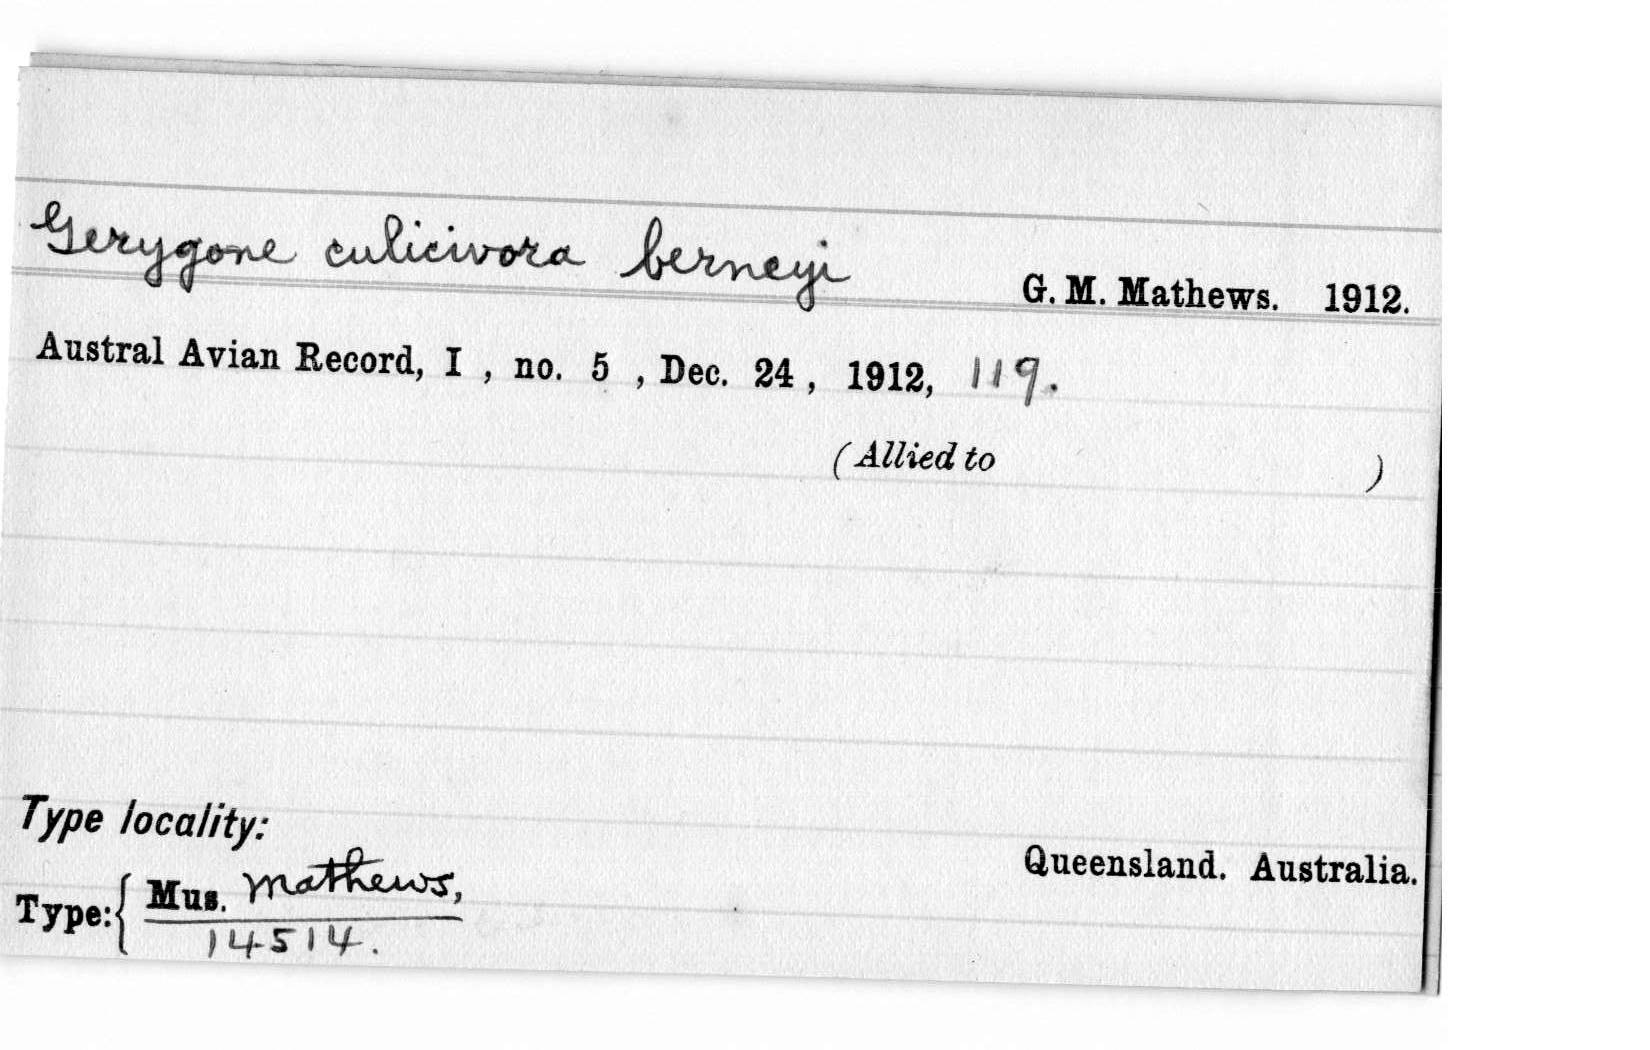 Gerygone culicivora berneyi G. M. Mathews. 1912.
Austral Avian Record, I , no. 5 , Dec. 24 , 1912, 119.
( Allied to )
Type locality:
Queensland. Australia.
Type: { Mus. Mathews,
14514.